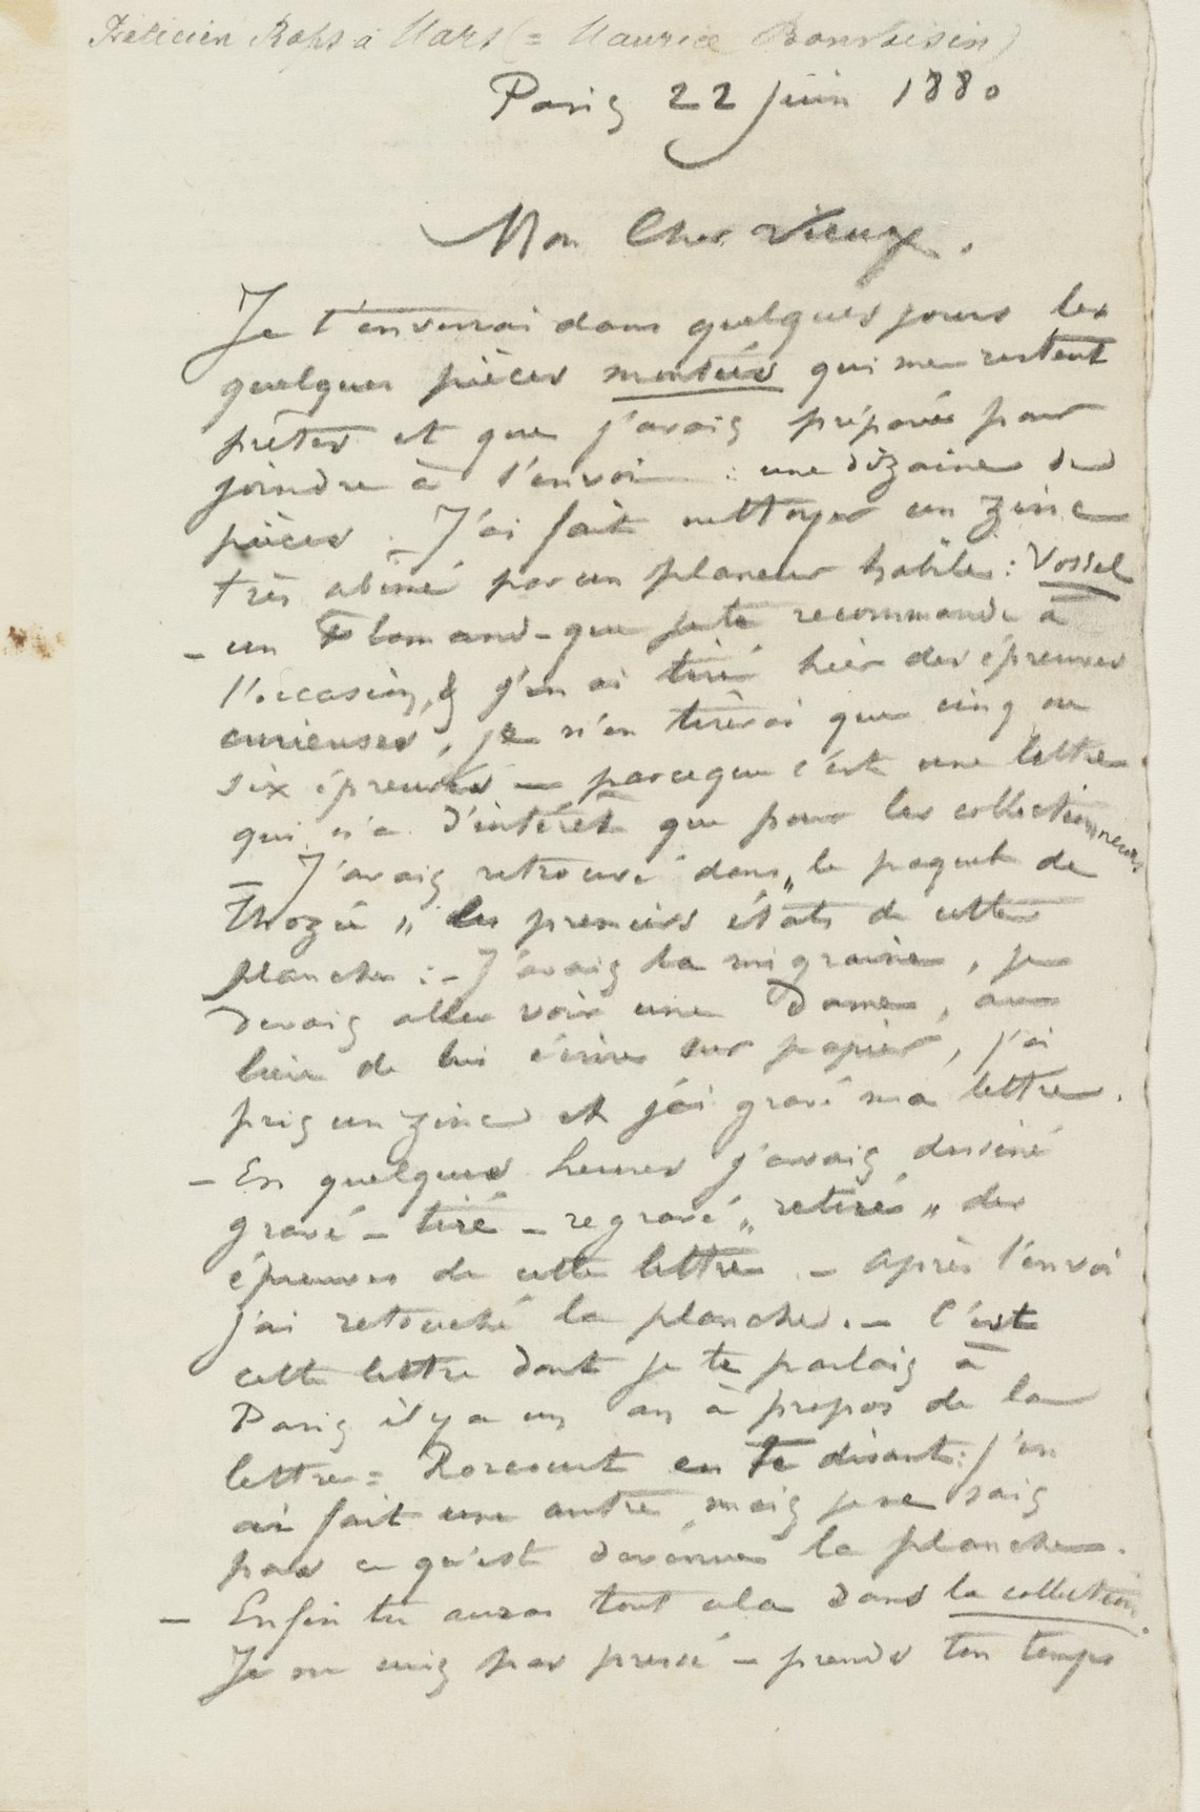 Félicien Rops à Mars (= Maurice Bonvoisin)
Paris 22 juin 1880
Mon Cher Vieux.
Je t'enverrai dans quelques jours les
quelques pièces montées qui me restent
prêtes et que j'avais préparées pour
joindre à l'envoi : une dizaine de
pièces. J'ai fait nettoyer un zinc
très abîmé par un planeur habile : Vossel
– un Flamand – que je te recommande à
l'occasion, & j'en ai tiré hier des épreuves
curieuses, je n'en tirerai que cinq ou
six épreuves – parceque c'est une lettre
qui n'a d'intérêt que pour les collectionneurs
– J'avais retrouvé dans „ le paquet de
Thozée „ les premiers états de cette
planche : – J'avais la migraine, je
devais aller voir une Dame, au
lieu de lui écrire sur papier, j'ai
pris un zinc et j'ai gravé ma lettre.
– En quelques heures j'avais dessiné
gravé – tiré – regravé „ retiré „ des
épreuves de cette lettre – après l'envoi
j'ai retouché la planche. – C'est
cette lettre dont je te parlais à
Paris il y a un an à propos de la
lettre = en te disant : j'en
ai fait une autre mais je ne sais
pas ce qu'est devenue la planche.
– Enfin tu auras tout cela dans la collection.
Je ne suis pas pressé – prends ton temps